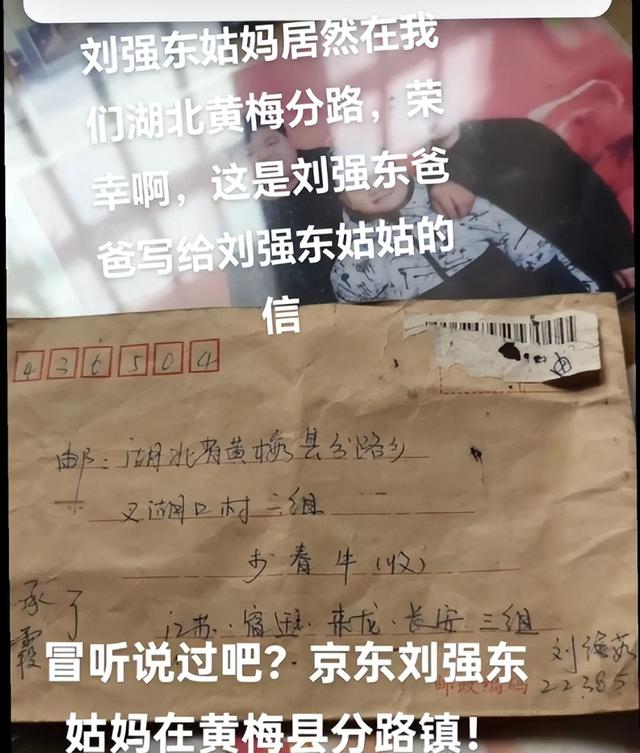 刘强东姑妈居然在我
们湖北黄梅分路，荣
幸啊，这是刘强东爸
爸写给刘强东姑姑的
信
436504
邮：湖北省黄梅县分路乡
又湖口村二组
春牛（收）
江苏·宿迁·来龙·长安三组
刘
邮政编码
22385
霞
冒听说过吧？京东刘强东
姑妈在黄梅县分路镇！